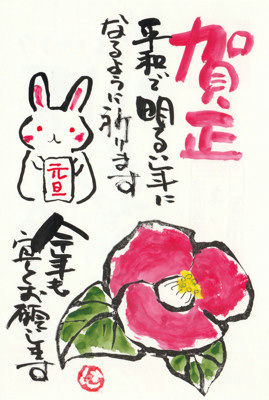 賀正
平和で明るい年に
なるように祈ります
元旦
今年も
宜しくお願いします